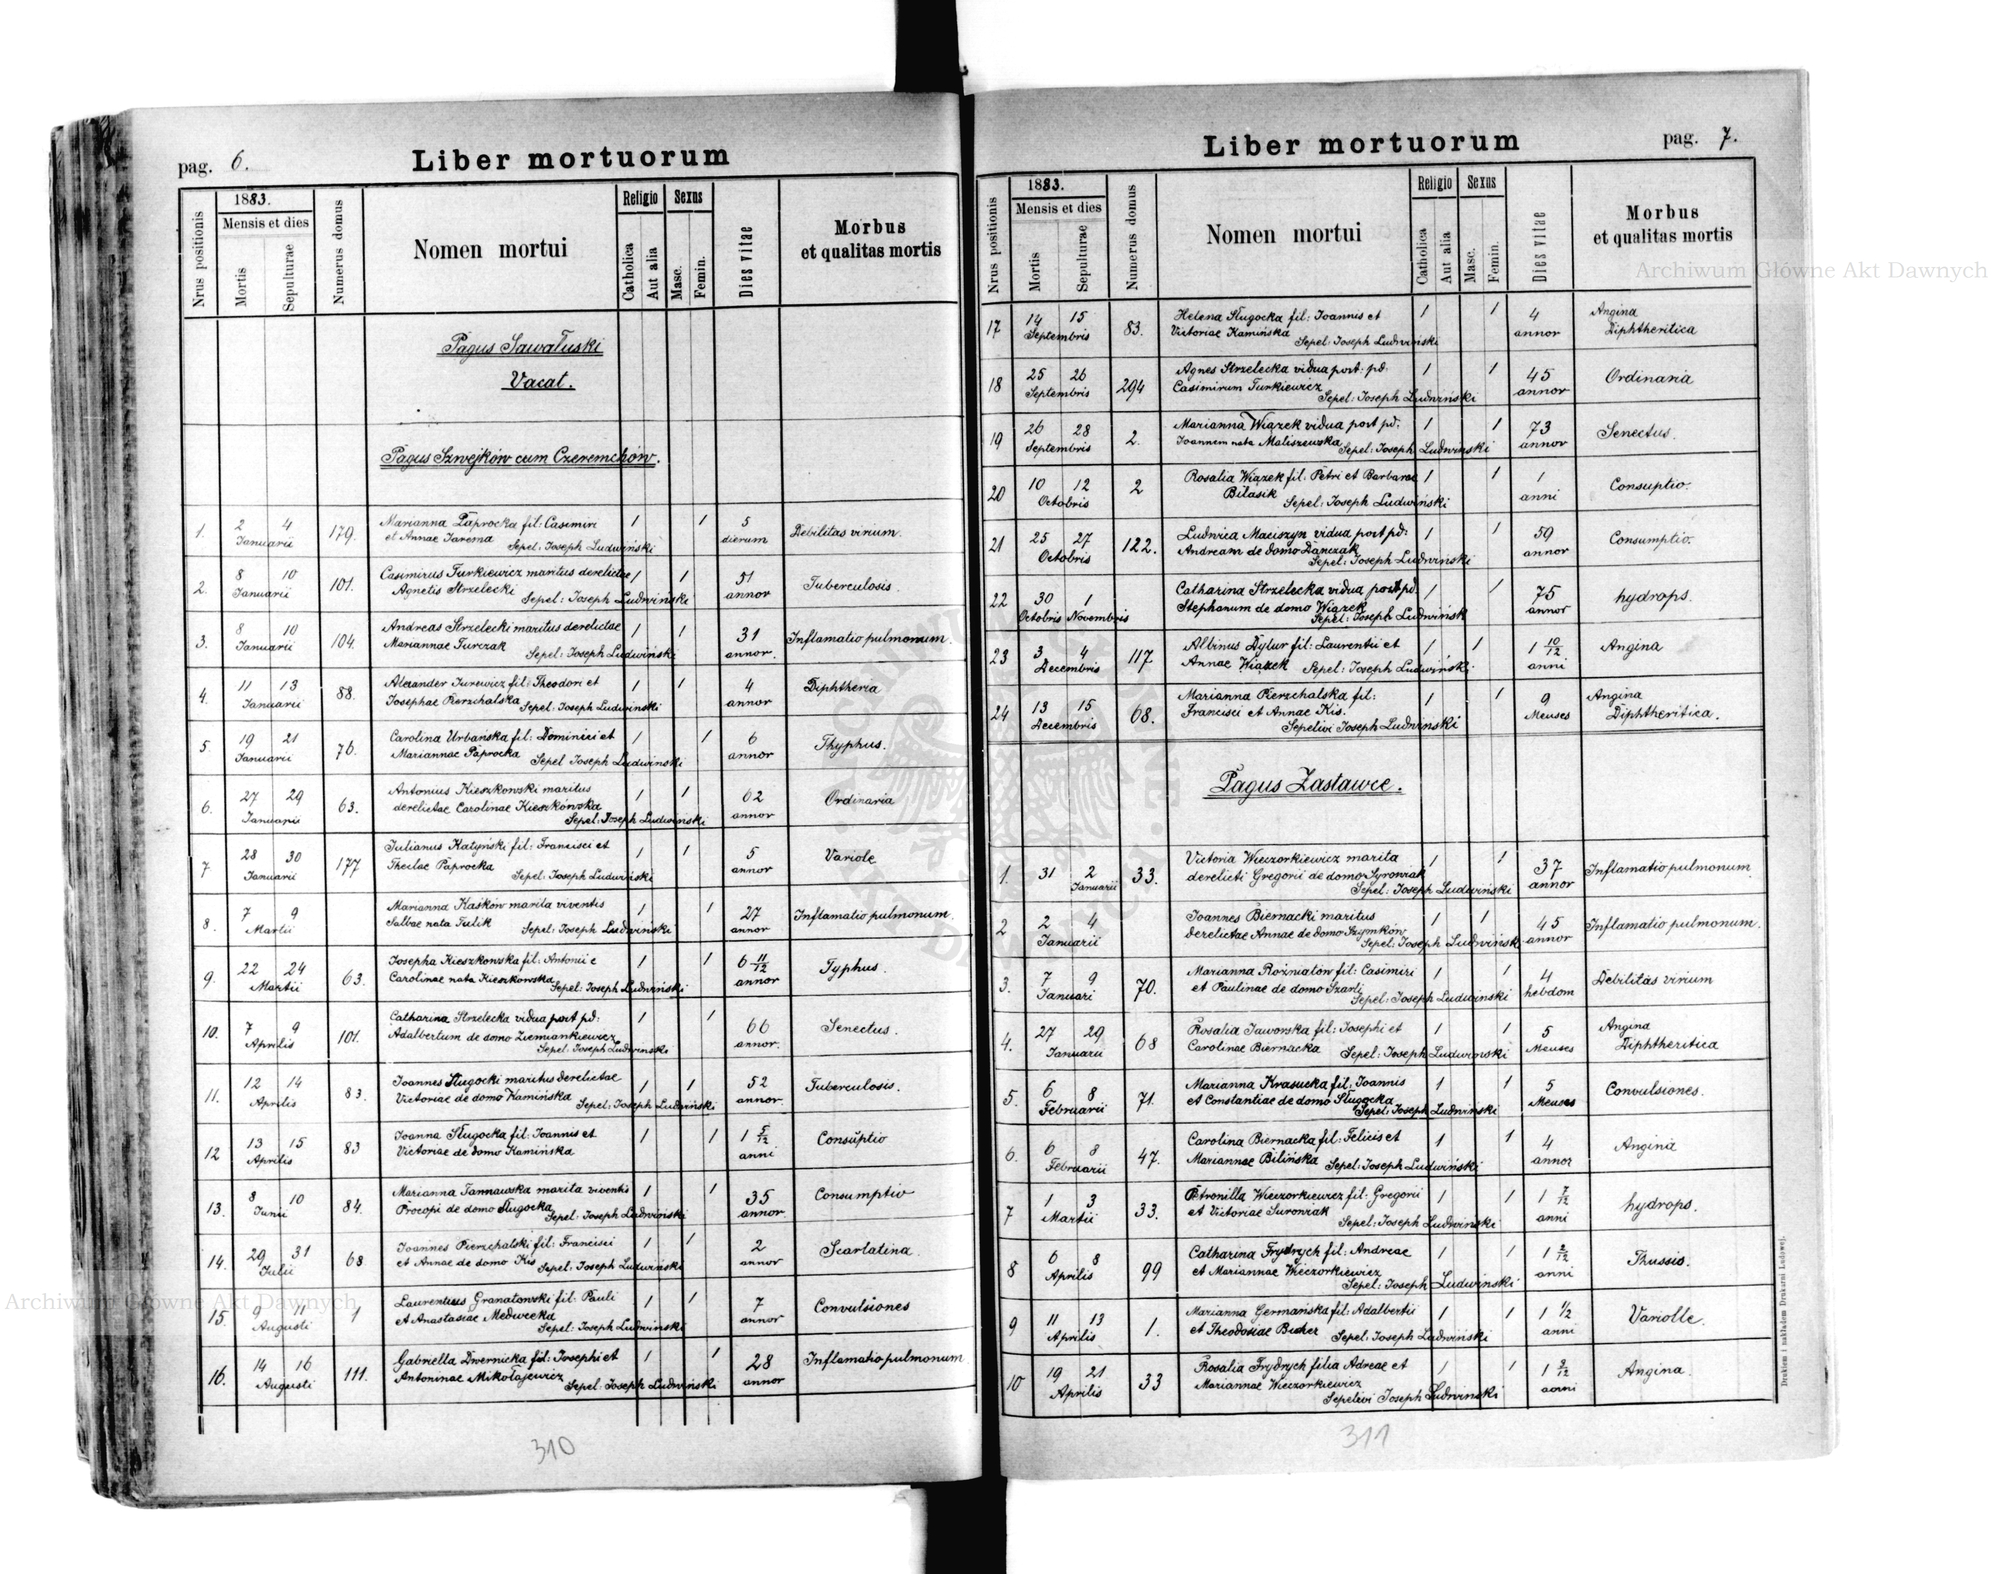 pag. 6.
Liber mortuorum
Nrus positionis
1883.
Mensis et dies
Mortis
Sepulturae
Numerus domus
Nomen mortui
Religio
Catholica
Aut alia
Sexus
Masc.
Femin.
Dies vitae
Morbus
et qualitas mortis
Pagus Sawałuski
Vacat.
Pagus Szwejków cum Czeremchów.
1. 2 4 179. Marianna Paprocka fil: Casimiri 1 1 5 Debilitas virium.
Januarii et Annae Jarema Sepel: Joseph Ludwiński dierum
2. 8 10 101. Casimirus Turkiewicz maritus derelictae 1 1 51 Tuberculosis.
Januarii Agnetis Strzelecki Sepel: Joseph Ludwiński annor
3. 8 10 104. Andreas Strzelecki maritus derelictae 1 1 31 Inflamatio pulmonum.
Januarii Mariannae Turczak Sepel: Joseph Ludwiński annor.
4. 11 13 88. Alexander Jurewicz fil: Theodori et 1 1 4 Diphtheria
Januarii Josephae Pierzchalska Sepel: Joseph Ludwiński annor
5. 19 21 76. Carolina Urbańska fil: Dominici et 1 1 6 Thyphus.
Januarii Mariannae Paprocka Sepel Joseph Ludwinski annor
6. 27 29 63. Antonius Kieszkowski maritus 1 1 62 Ordinaria
Januarii derelictae Carolinae Kieszkówska annor
Sepel: Joseph Ludwiński
7 28 30 177 Julianus Katyński fil: Francisci et 1 1 5 Variole
Januarii Theclae Paprocka Sepel: Joseph Ludwiński annor
8. 7 9 Marianna Kaśków marita viventis 1 1 27 Inflamatio pulmonum.
Martii Salbae nata Tulik Sepel: Joseph Ludwiński annor
9. 22 24 63. Josepha Kieszkowska fil: Antonii e 1 1 6 11/12 Typhus.
Martii Carolinae nata Kieszkowska Sepel: Joseph Ludwiński annor
10. 7 9 101. Catharina Strzelecka vidua post pd: 1 1 66 Senectus.
Aprilis Adalbertum de domo Ziemiankiewicz annor.
Sepel: Joseph Ludwinski
11. 12 14 83. Joannes Sługocki maritus derelictae 1 1 52 Tuberculosis.
Aprilis Victoriae de domo Kamińska Sepel: Joseph Ludwiński annor.
12 13 15 83 Joanna Sługocka fil: Joannis et 1 1 1 5/12 Consŭptio
Aprilis Victoriae de domo Kamińska anni
13. 8 10 84. Marianna Jannawska marita viventis 1 1 35 Consumptio
Junii Procopi de domo Sługocka Sepel: Joseph Ludwiński annor
14. 29 31 68 Joannes Pierzchalski fil: Francisci 1 1 2 Scarlatina.
Julii et Annae de domo Kis Sepel: Joseph Ludwiński annor
15. 9 11 1 Laurentius Granatowski fil: Pauli 1 1 7 Convulsiones
Augusti et Anastasiae Medwecka annor
Sepel: Joseph Ludwiński
16. 14 16 111. Gabriella Dwernicka fil: Josephi et 1 1 28 Inflamatio pulmonum
Augusti Antoninae Mikołajewicz Sepel: Joseph Ludwiński annor
310
Liber mortuorum
pag. 7.
Nrus positionis
1883.
Mensis et dies
Mortis
Sepulturae
Numerus domus
Nomen mortui
Religio
Catholica
Aut alia
Sexus
Masc.
Femin.
Dies vitae
Morbus
et qualitas mortis
17 14 15 83. Helena Sługocka fil: Joannis et 1 1 4 Angina
Septembris Victoriae Kamińska annor Diphtheritica
Sepel: Joseph Ludwiński
18 25 26 294 Agnes Strzelecka vidua post: pd: 1 1 45 Ordinaria
Septembris Casimirum Turkiewicz annor
Sepel: Joseph Ludwiński
19 26 28 2. Marianna Wiązek vidua post pd: 1 1 73 Senectus.
Septembris Joannem nata Maliszewska Sepel: Joseph Ludwiński annor
20 10 12 2 Rosalia Wiązek fil: Petri et Barbarae 1 1 1 Consuptio.
Octobris Bilasik Sepel: Joseph Ludwiński anni
21 25 27 122. Ludwica Maciszyn vidua post pd: 1 1 59 Consumptio.
Octobris Andream de domo Dańczak annor
Sepel: Joseph Ludwiński
22 30 1 Catharina Strzelecka vidua post pd. 1 1 75 hydrops.
Octobris Novembris Stephanum de domo Wiązek annor
Sepel: Joseph Ludwiński
23 3 4 117 Albinus Dytur fil: Laurentii et 1 1 1 10/12 Angina
Decembris Annae Wiązek Sepel: Joseph Ludwiński anni
24 13 15 68. Marianna Pierzchalska fil: 1 1 9 Angina
Decembris Francisci et Annae Kis. Menses Diphtheritica.
Sepelivi Joseph Ludwinski
Pagus Zastawce.
1. 31 2 33. Victoria Wieczorkiewicz marita 1 1 37 Inflamatio pulmonum
Januarii derelicti Gregorii de domo Syroniak annor
Sepel: Joseph Ludwiński
2 2 4 Joannes Biernacki maritus 1 1 45 Inflamatio pulmonum.
Januarii derelictae Annae de domo Szymków annor
Sepel: Joseph Ludwiński
3. 7 9 70. Marianna Rożniatów fil: Casimiri 1 1 4 Debilitas virium
Januari et Paulinae de domo Szarli hebdom
Sepel: Joseph Ludwiński
4. 27 29 68 Rosalia Jaworska fil: Josephi et 1 1 5 Angina
Januarii Carolinae Biernacka Sepel: Joseph Ludwinski Menses Diphtheritica
5. 6 8 71. Marianna Krasucka fil: Joannis 1 1 5 Convulsiones.
Februarii et Constantiae de domo Sługocka Menses
Sepel: Joseph Ludwiński
6. 6 8 47. Carolina Biernacka fil: Felicis et 1 1 4 Angina
Februarii Mariannae Bilińska Sepel: Joseph Ludwiński annor
7 1 3 33. Petronilla Wieczorkiewicz fil: Gregorii 1 1 1 7/12 hydrops.
Martii et Victoriae Suroniak Sepel: Joseph Ludwiński anni
8 6 8 99 Catharina Frydrych fil: Andreae 1 1 1 2/12 Thussis.
Aprilis et Mariannae Wieczorkiewicz anni
Sepel: Joseph Ludwinski
9 11 13 1. Marianna Germańska fil: Adalbertii 1 1 1 1/2 Variolle.
Aprilis et Theodosiae Bucher Sepel: Joseph Ludwiński anni
10 19 21 33 Rosalia Frydrych filia Adreae et 1 1 1 2/12 Angina.
Aprilis Mariannae Wieczorkiewicz anni
Sepelivi Joseph Ludwinski
311
Drukiem i nakładem Drukarni Ludowej.
Archiwum Główne Akt Dawnych
Archiwum Główne Akt Dawnych